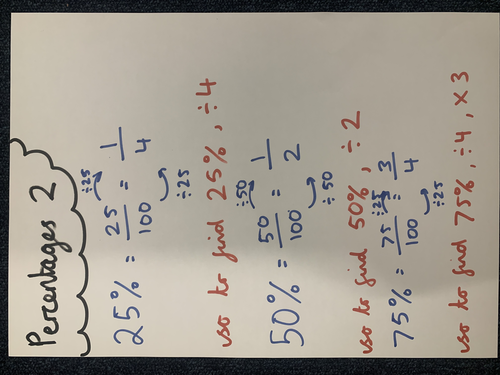 Percentages 2
÷25
25% = 25/100 = 1/4
÷25
so to find 25%, ÷4
÷50
50% = 50/100 = 1/2
÷50
so to find 50%, ÷2
÷25
75% = 75/100 = 3/4
÷25
so to find 75%, ÷4, ×3